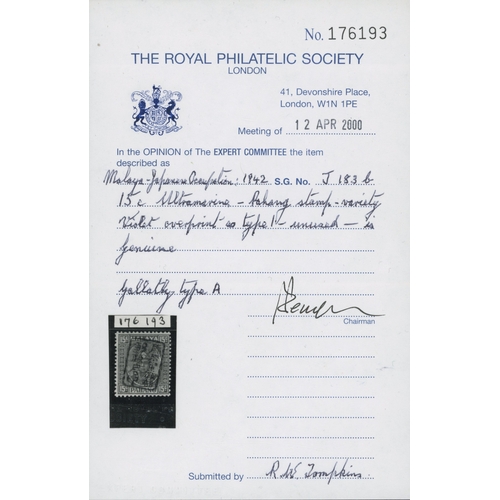 No. 176193
THE ROYAL PHILATELIC SOCIETY
LONDON
41, Devonshire Place,
London, W1N 1PE
Meeting of 12 APR 2000
In the OPINION of The EXPERT COMMITTEE the item
described as
Malaya-Japanese Occupation, 1942 S.G. No. J 183 b
15c Ultramarine - Pahang stamp - variety
Violet overprint as type 1 - unused - is
genuine
Gallatly type A
Chairman
176 193
MALAYA
Submitted by R W Tompkins